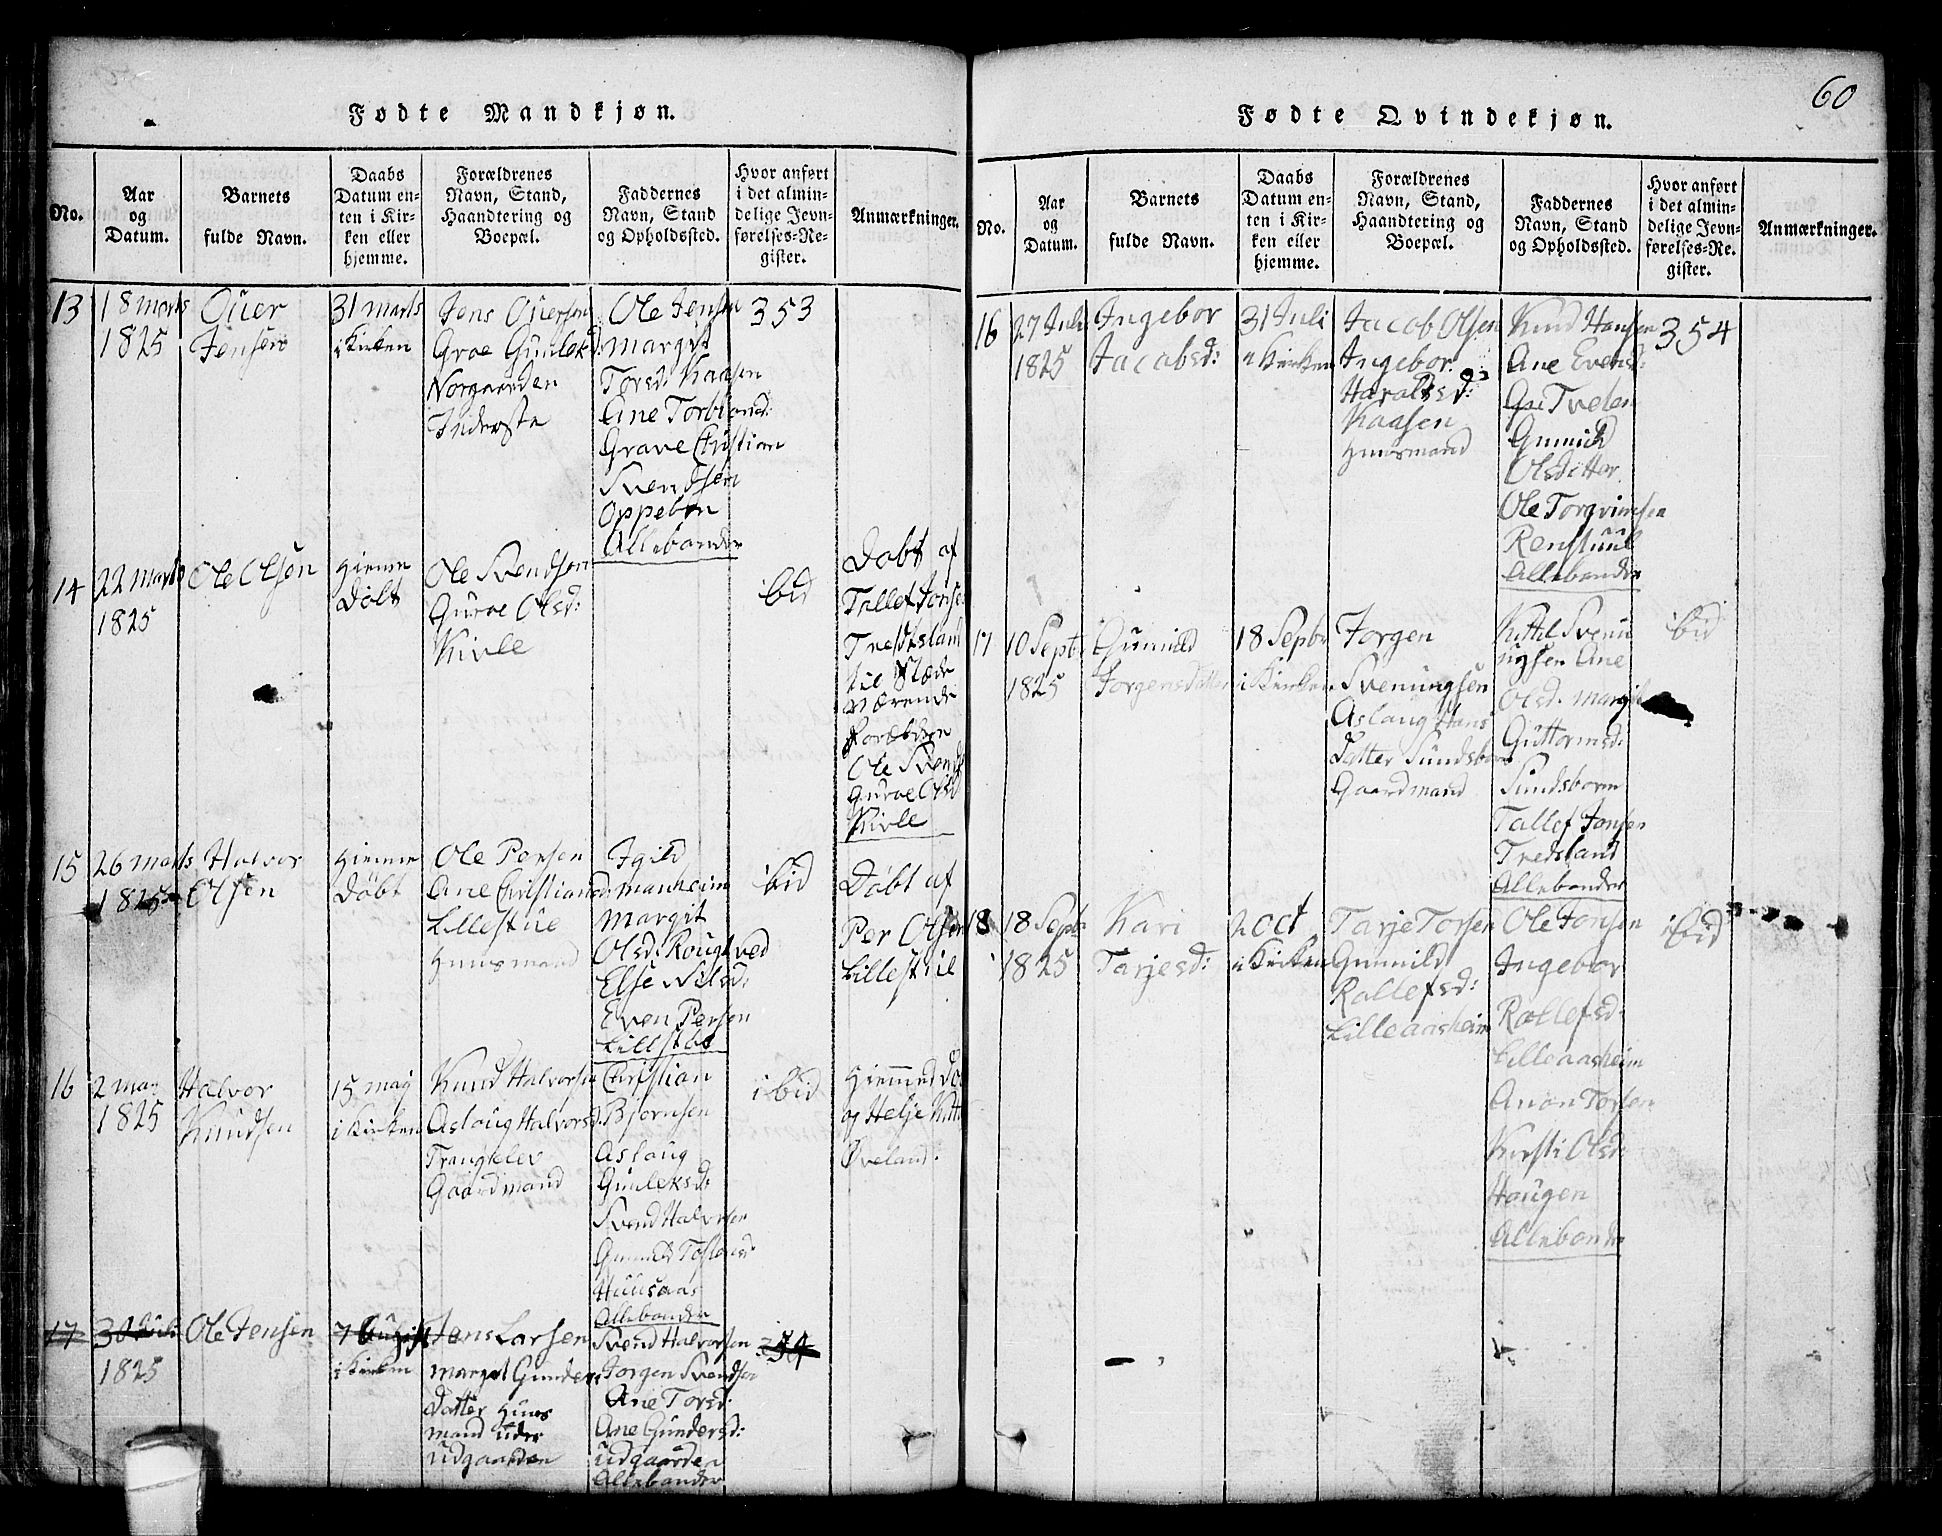 60
Fødte Mandkjøn.
No.
Aar
og
Datum.
Barnets
fulde Navn.
Daabs
Datum en-
ten i Kir-
ken eller
hjemme.
Forældrenes
Navn, Stand,
Haandtering og
Boepæl.
Faddernes
Navn, Stand
og Opholdssted.
Hvor anført
i det almin-
delige Jevn-
førelses-Re-
gister.
Anmærkninger.
13
18 marts
1825
Ouer
Jensen
31 marts
i Kirken
Jens Ouersen
Groe Gunleksd:
Norgaarden
Inderste
Ole Jensen
margit
Torsd: Kaasen
Ane Torbiond:
Grave Christian
Svendsen
Oppebøn
Allebønder
353
14
22 marts
1825
Ole Olsen
Hiemme
Døbt
Ole Svendsøn
Guroe Olsd:
Kivle
ibid
Døbt af
Tallef Jonse
Tredtsland
til stæde
værende
Forældren
Ole Svends
Guroe Olsd
Kivle
15
26 marts
1825
Halvor
Olsen
Hiemme
Døbt
Ole Persen
Ane Christiand:
Lillestue
Huusmand
Igild
manheim
Margit
Olsd: Rougtved
Else Nilsd:
Even Persen
Lillestue
ibid
Døbt af
Per Olsen
Lillestue
16
2 may
1825
Halvor
Knudsen
15 may
i Kirken
Knud Halvorsen
Aslaug Halvorsd:
Trangklev
Gaardmand
Christian
Bjørnsen
Aslaug
Gunleksd:
Svend Halvorsen
Gunnild Tostensd:
Huusaas
Allebønder
ibid
Hiemmedø
og Helje Kitt
Øveland:
17
30 Juli
1825
Ole Jensen
7 August
i Kirken
Jens Larsen
margit Gunders
datter Huus
mand under
Udgaarden
Svend Halvorsen
Jorgen Svendsen
Ane Torsd:
Ane Gundersd:
Udgaarden
Allebønder
354
Fødte Qvindekjøn.
No.
Aar
og
Datum.
Barnets
fulde Navn.
Daabs
Datum en-
ten i Kir-
ken eller
hjemme.
Forældrenes
Navn, Stand,
Haandtering og
Boepæl.
Faddernes
Navn, Stand
og Opholdssted.
Hvor anført
i det almin-
delige Jevn-
førelses-Re-
gister.
Anmærkninger.
16
27 Juli
1825
Ingebor
Jacobsd:
31 Juli
i Kirken
Jacob Olsen
Ingebor
Haralsd:
Kaasen
Huusmand
Knud Hansen
Ane Evensd:
Tveten
Gunnild
Olsditter
Ole Torgrimsen
Renstuul
Allebønder
354
17
10 Septb
1825
Gunnild
Jorgensdatter
18 Septbr
i Kirken
Jorgen
Svenungsen
Aslaug Hans
datter Sundsbarm
Gaardmand
Kittil Svenu
ngsen Ane
Olsd. margit
Guttormsd:
Sundsbarm
Tallef Jonsen
Tredsland
Allebønder
ibid
18
18 Septb:
1825
Kari
Tarjesd:
2 oct
i Kirken
Tarje Torsen
Gunnild
Rollefsd:
Lilleaasheim
Ole Jonsen
Ingebor
Rollefsd:
Lilleaasheim
Anon Torsen
Kirsti Olsd:
Haugen
Allebønder
ibid